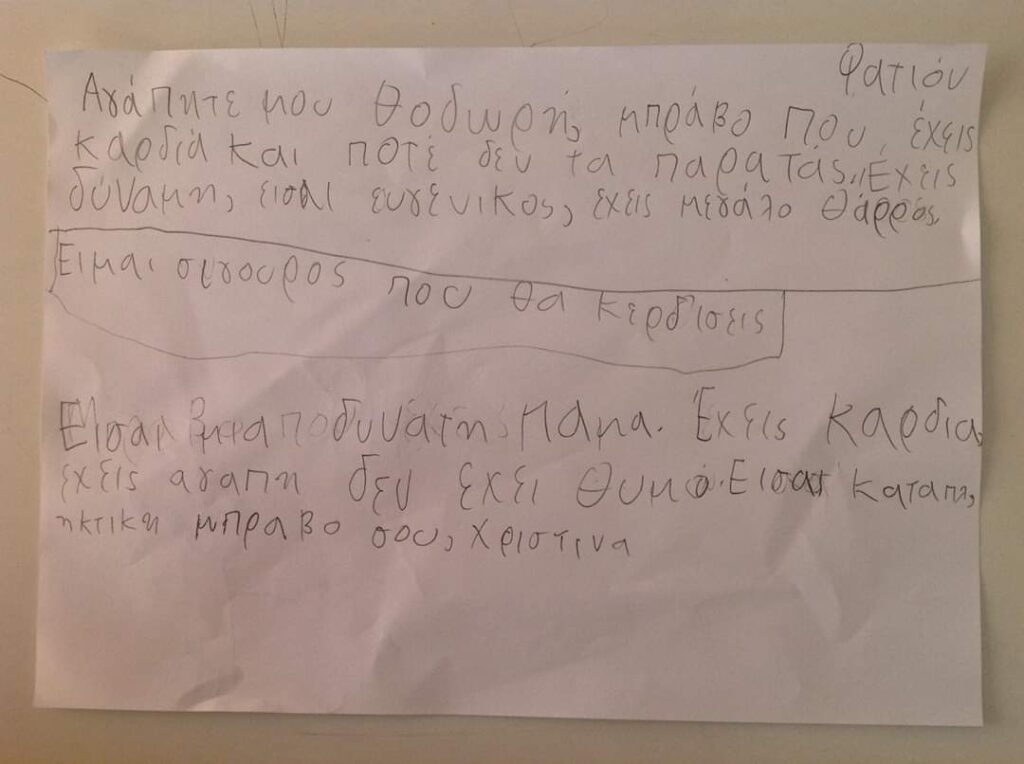 Φατιόν
Αγάπητε μου Θοδωρή, μπράβο που έχεις
καρδιά και ποτέ δεν τα παρατάς. Έχεις
δύναμη, εισαι ευγενικος, έχεις μεγάλο θάρρος,
Ειμαι σιγουρος που θα κερδισεις
Εισαι δυνατη μαμα. Έχεις καρδια,
έχεις αγαπη δεν εχει θυμό. Εισαι καταπλ,
ηκτικη μπραβο σου, χριστινα